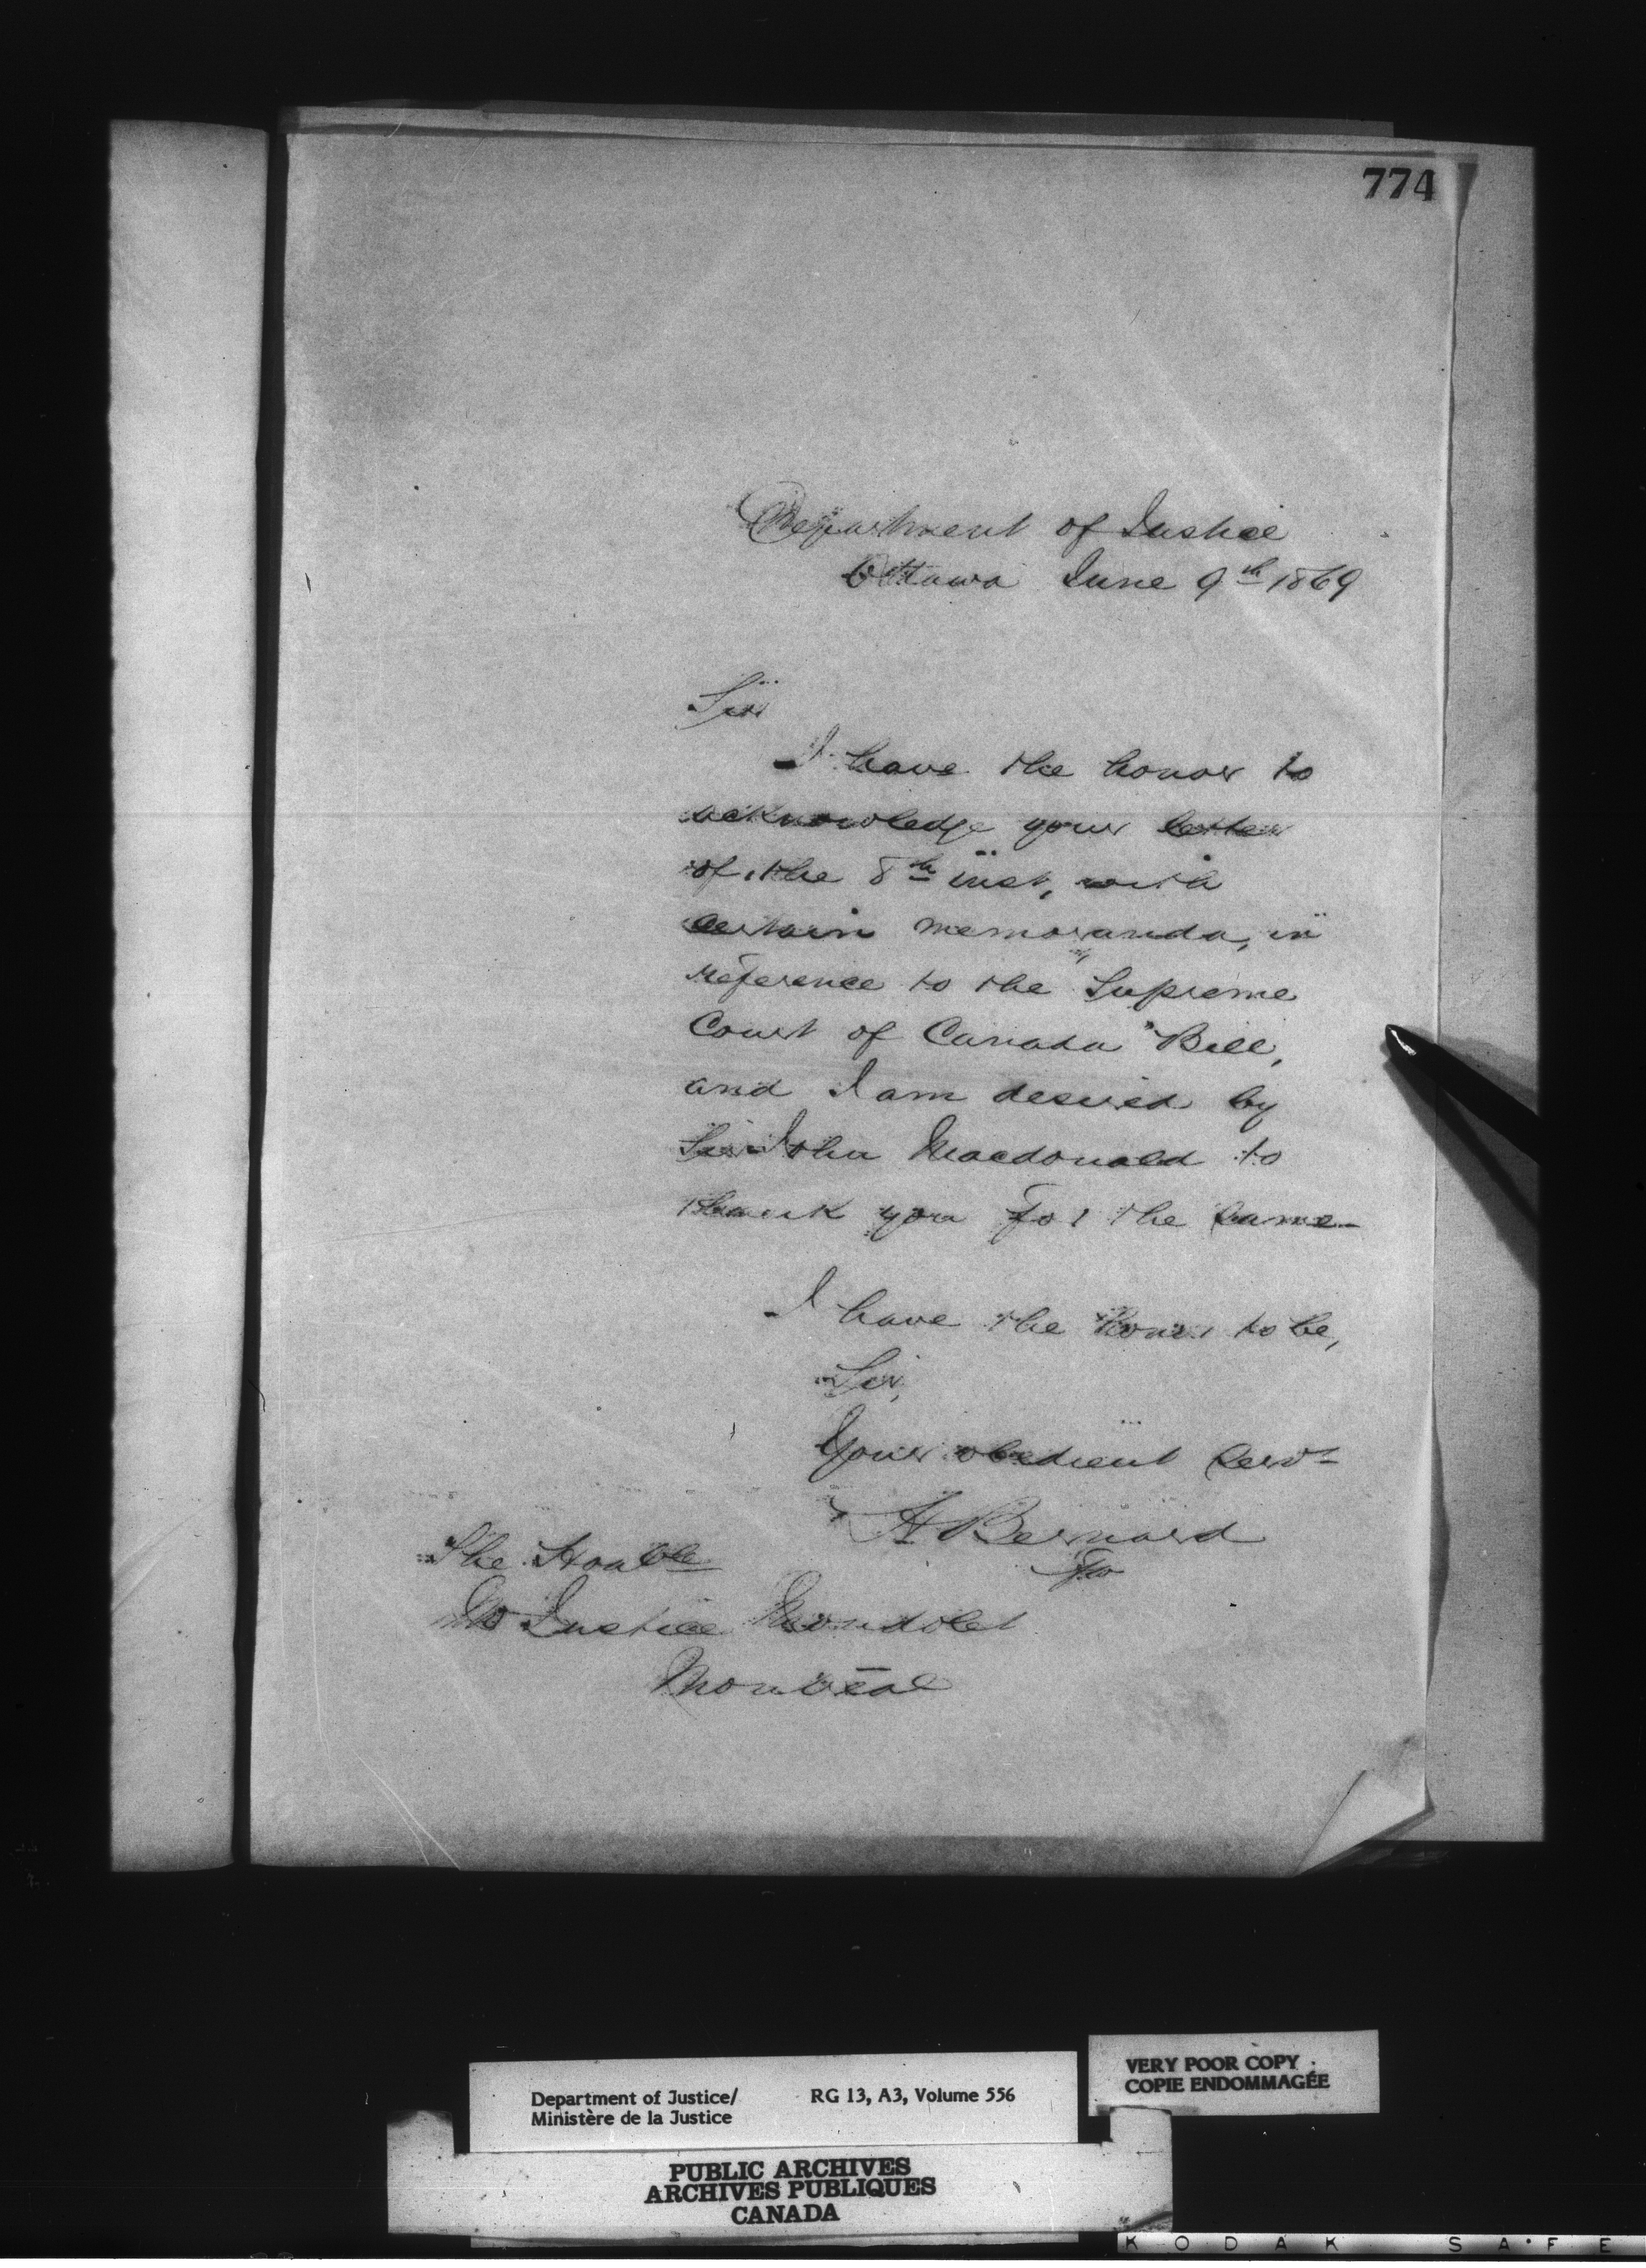 774
Department of Justice
Ottawa June 9th 1869
Sir
I have the honor to
acknowledge your letter
of the 8th inst, with
certain memoranda, in
reference to the "Supreme
Court of Canada" Bill,
and I am desired by
Sir John Macdonald to
thank you for the same
I have the honor to be,
Sir,
Your obedient servt
H Bernard
The Honble
Mr Justice Mondelet
Montreal
Department of Justice/ RG 13, A3, Volume 556
Ministère de la Justice
VERY POOR COPY
COPIE ENDOMMAGÉE
PUBLIC ARCHIVES
ARCHIVES PUBLIQUES
CANADA
KODAK SAFE